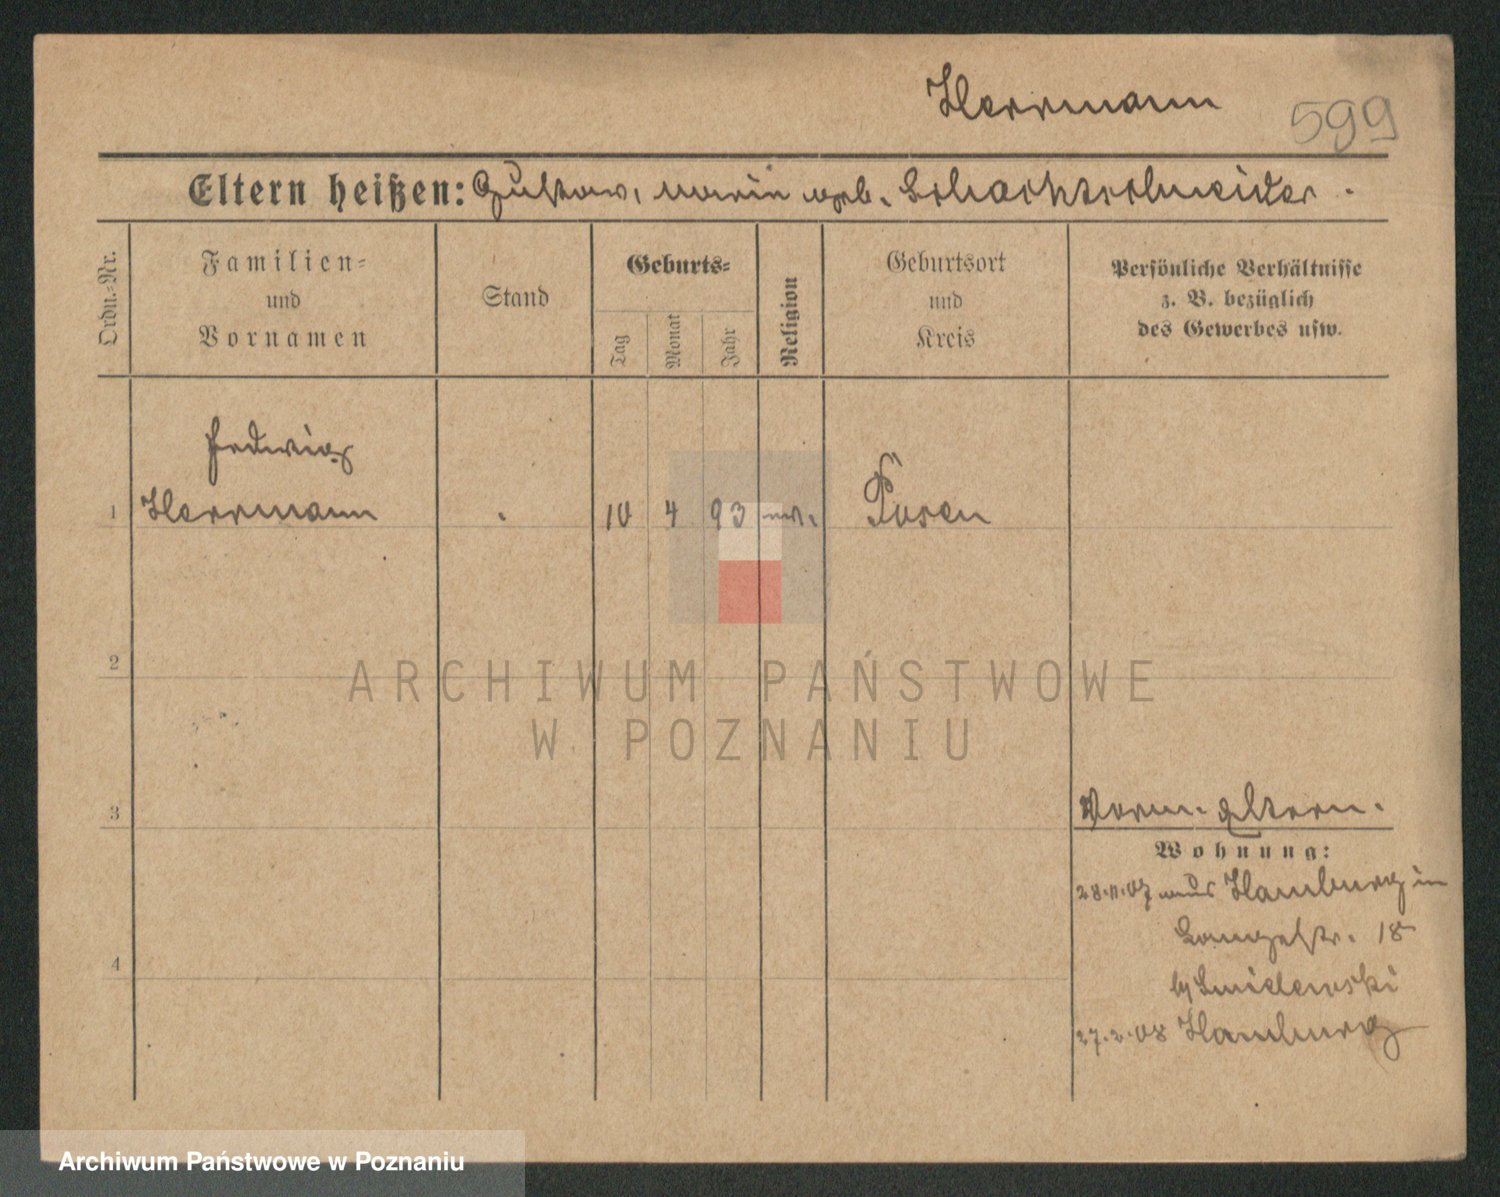 Herrmann
599
Eltern heißen: Gustav, Marie geb. Schachtschneider.
Ordn.-Nr.
Familien-
und
Vornamen
Stand
Geburts-
Tag
Monat
Jahr
Religion
Geburtsort
und
Kreis
Persönliche Verhältnisse
z. B. bezüglich
des Gewerbes usw.
Hedwig
1 Herrmann 10 4 93 ev. Posen
2
3
4
Vorm. Eltern.
Wohnung:
28.11.07 aus Hamburg in
Langestr. 18
27.2.08 Hamburg
ARCHIWUM PAŃSTWOWE
W POZNANIU
Archiwum Państwowe w Poznaniu